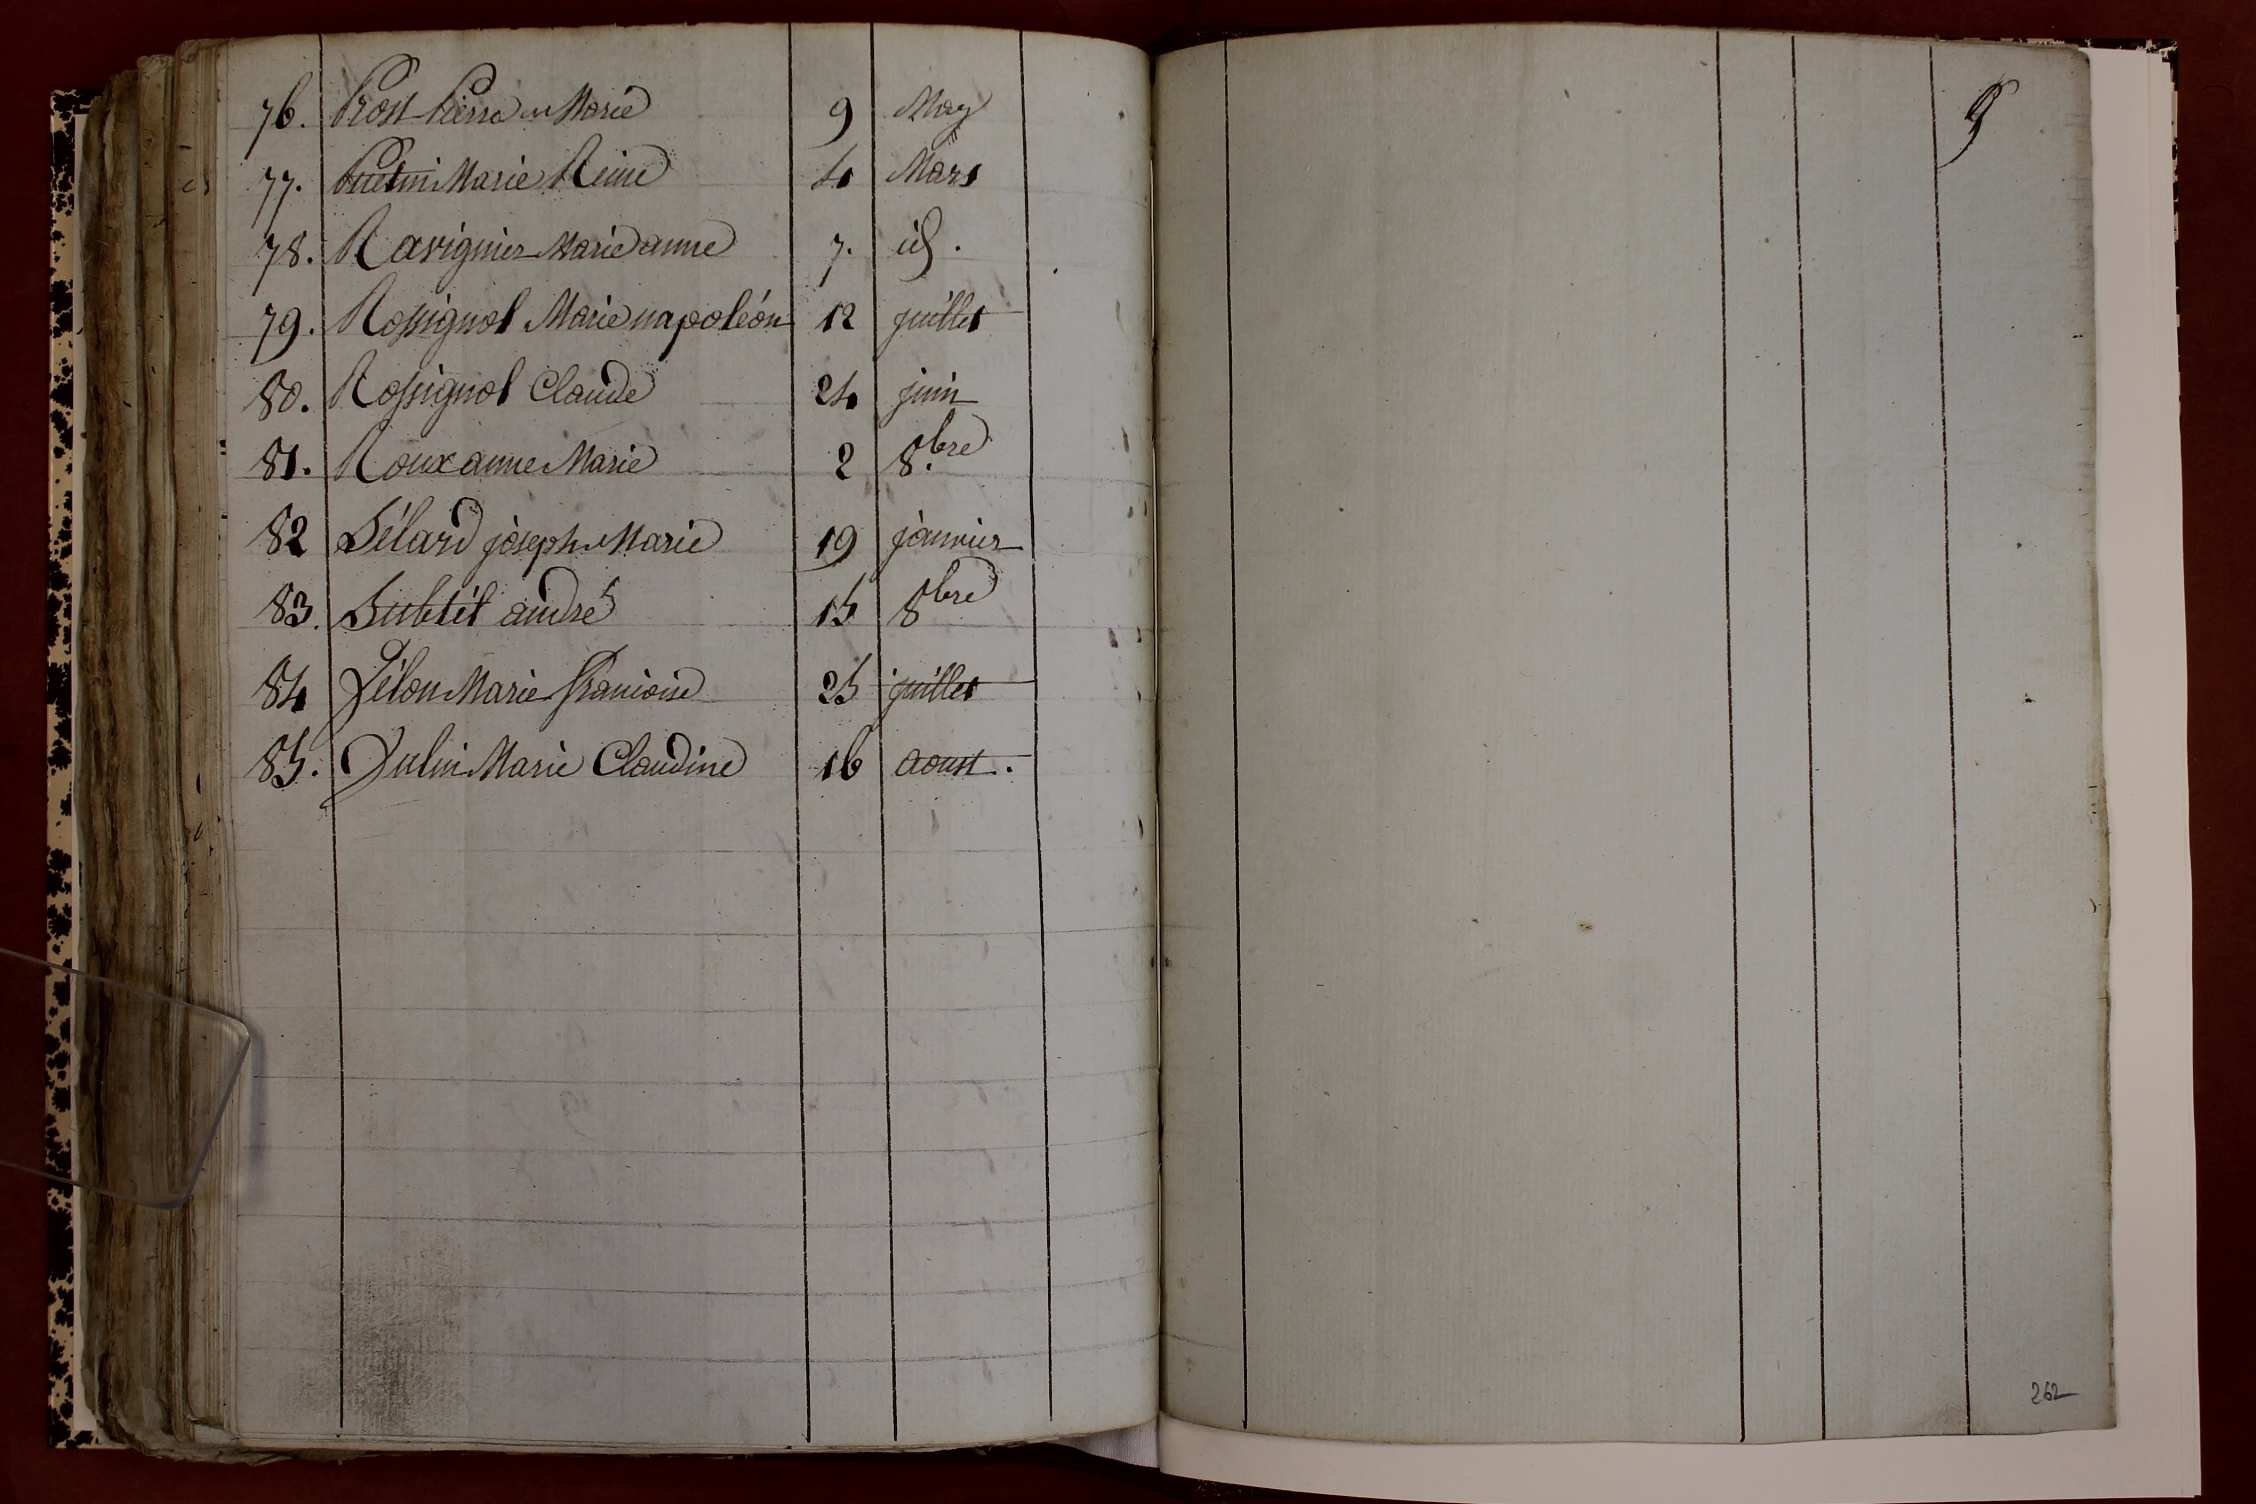 76. Prost Pierre Marie 9 May
77. Putin Marie Reine 4 Mars
78. Ravignier Marie anne 7. id.
79. Rossignol Marie napoléon 12 juillet
80. Rossignol Claude 24 juin
81. Roux anne Marie 2 8.bre
82 Sélard joseph Marie 19 janvier
83. Subtil andré 15 8bre
84 Marie Francoise 25 juillet
85. Marie Claudine 16 aoust.
262